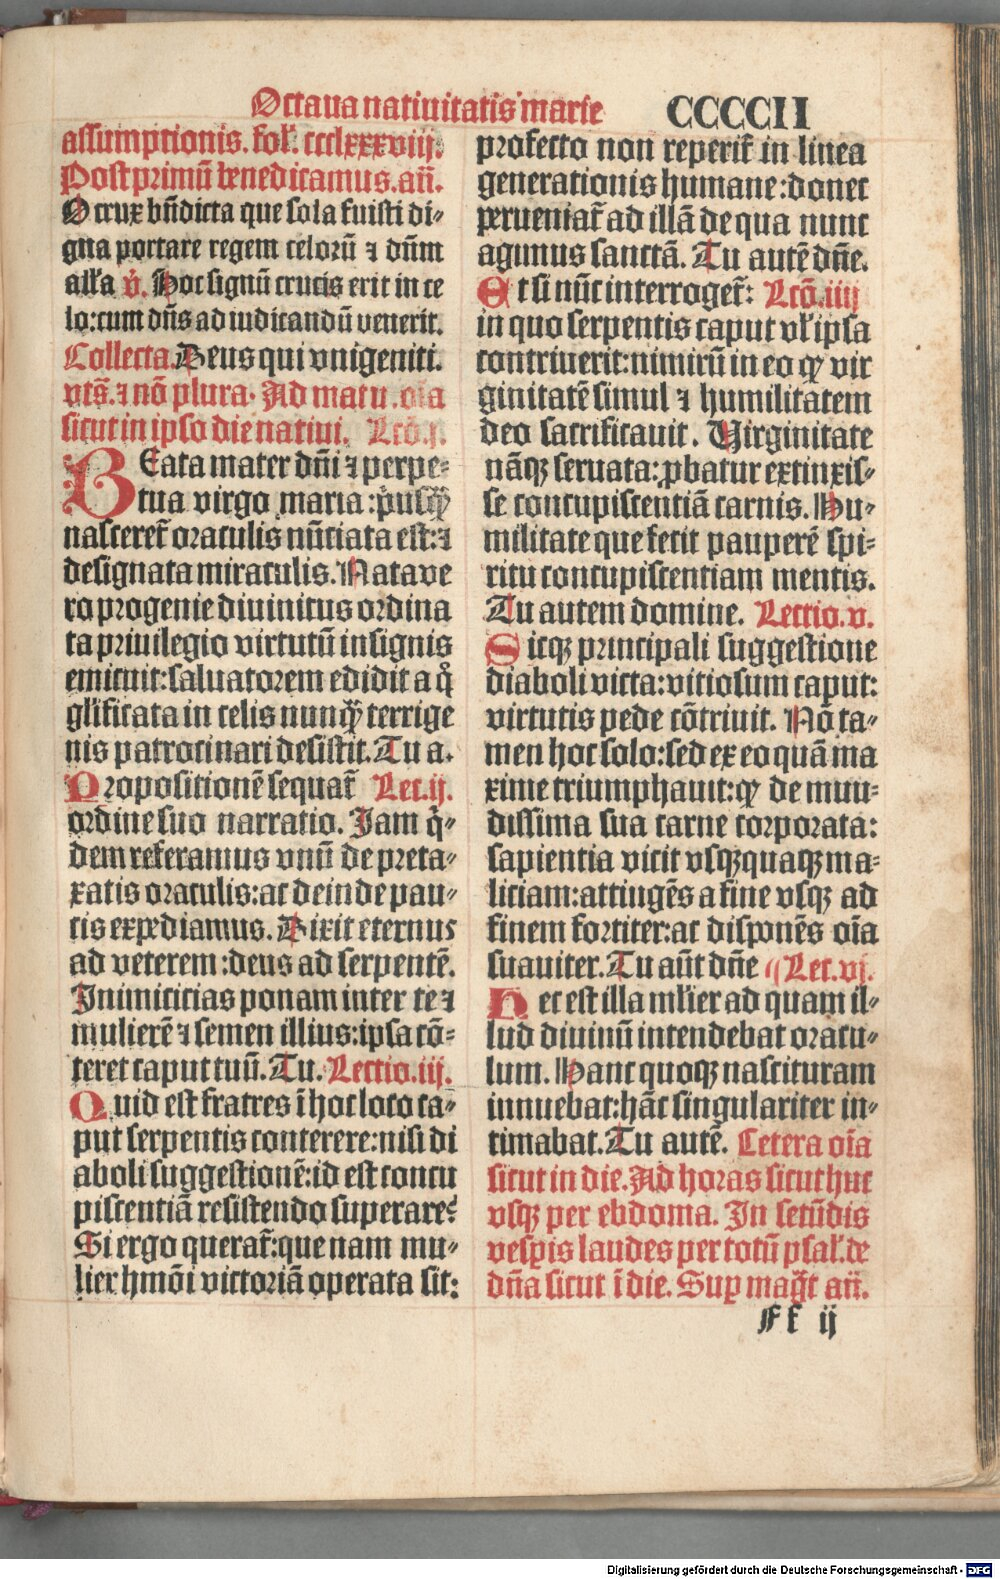 Octaua natiuitatis marie CCCCCII
assumptionis. fol'. ccclxxxviij.
Post primū benedicamus. an̄.
O crux bn̄dicta que sola fuisti di⸗
gna portare regem celorū ⁊ dn̄m
alľa v̇. Hoc signū crucis erit in ce
lo: cum dn̄s ad iudicandū venerit.
Collecta. Deus qui vnigeniti.
vts̄. ⁊ nō plura. Ad matu. oīa
sicut in ipso die natiui. Lcō. j.
BEata mater dn̄i ⁊ perpe⸗
tua virgo maria: pͥusqꝫ̄
nasceret̄ oraculis nūciata est: ⁊
designata miraculis. Nata ve
ro progenie diuinitus ordina
ta priuilegio virtutū insignis
emicuit: saluatorem edidit a qͦ
gľificata in celis nunqꝫ̄ terrige
nis patrocinari desistit. Tu a.
Propositionē sequat̄ Lec. ij.
ordine suo narratio. Iam qͥ⸗
dem referamus vnū de preta⸗
xatis oraculis: ac deinde pau⸗
cis expediamus. Dixit eternus
ad veterem: deus ad serpentē.
Inimicicias ponam inter te ⁊
mulierē ⁊ semen illius: ipsa cō⸗
teret caput tuū. Tu. Lectio. iij.
Quid est fratres ī hoc loco ca⸗
put serpentis conterere: nisi di
aboli suggestionē: id est concu
piscentiā resistendo superare?
Si ergo querat̄: que nam mu⸗
lier hmōi victoriā operata sit:
profecto non reperit̄ in linea
generationis humane: donec
perueniat̄ ad illā de qua nunc
agimus sanctā. Tu autē dn̄e.
Et si nūc interroget̄: Lcō. iiij
in quo serpentis caput vľ ipsa
contriuerit: nimirū in eo qꝫ vir
ginitatē simul ⁊ humilitatem
deo sacrificauit. Virginitate
nāqꝫ seruata: ꝓbatur extinxis⸗
se concupiscentiā carnis. Hu⸗
militate que fecit pauperē spi⸗
ritu concupiscentiam mentis.
Tu autem domine. Lectio. v.
Sicqꝫ principali suggestione
diaboli victa: vitiosum caput:
virtutis pede cōtriuit. Nō ta⸗
men hoc solo: sed ex eo quā ma
xime triumphauit: qꝫ de mun⸗
dissima sua carne corporata:
sapientia vicit vsqꝫquaqꝫ ma⸗
liciam: attingēs a fine vsqꝫ ad
finem fortiter: ac disponēs oīa
suauiter. Tu aūt dn̄e Lec. vj.
Hec est illa mľier ad quam il⸗
lud diuinū intendebat oracu⸗
lum. Hanc quoqꝫ nascituram
innuebat: hāc singulariter in⸗
timabat. Tu autē. Cetera oīa
sicut in die. Ad horas sicut huc
vsqꝫ per ebdoma. In secūdis
vesꝑis laudes per totū psal'. de
dn̄a sicut ī die. Suꝑ magͣt an̄.
Ff ij
Digitalisierung gefördert durch die Deutsche Forschungsgemeinschaft - DFG